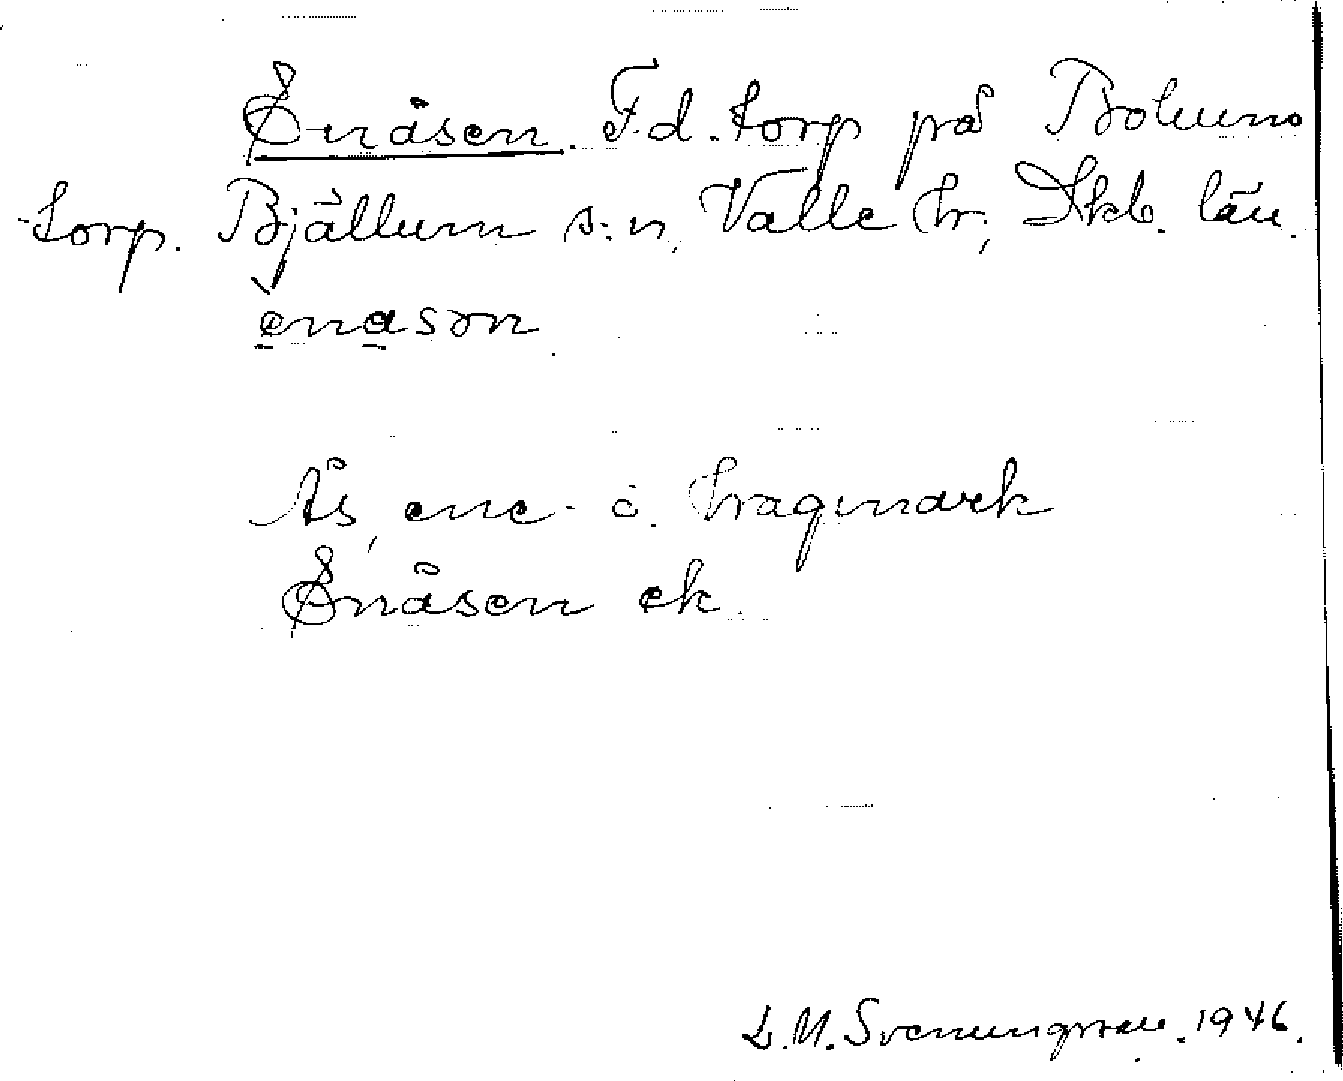 Enåsen. F.d. torp på Bolums
torp. Bjällum s:n, Valle hr; Skb. län.
enason
Ås, ene- o. hagmark
Enåsen ek.
L.M. Svenungsson. 1946.